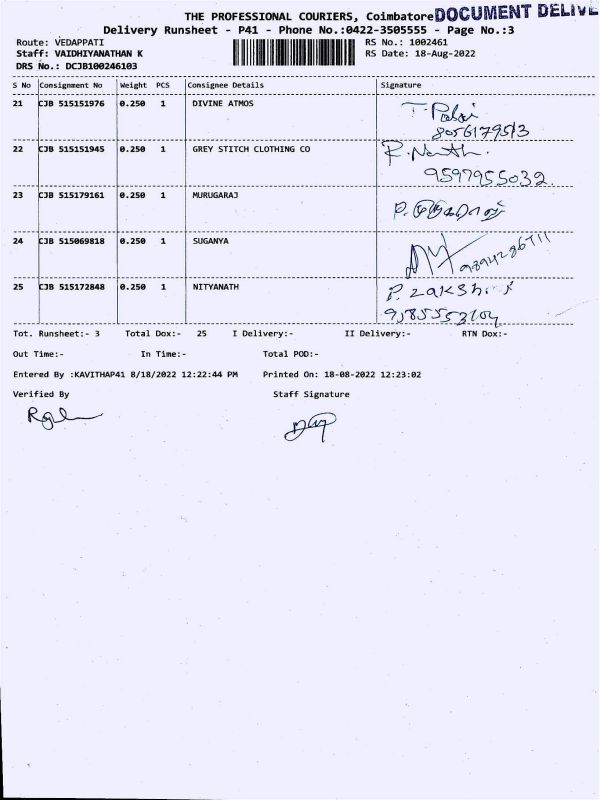 THE PROFESSIONAL COURIERS, Coimbatore DOCUMENT DELIVE
Delivery Runsheet - P41 - Phone No.:0422-3505555 - Page No.:3
Route: VEDAPPATI RS No.: 1002461
Staff: VAIDHIYANATHAN K RS Date: 18-Aug-2022
DRS No.: DCJB100246103
S No Consignment No Weight PCS Consignee Details Signature
21 CJB 515151976 0.250 1 DIVINE ATMOS
8056179513
22 CJB 515151945 0.250 1 GREY STITCH CLOTHING CO
9597955032
23 CJB 515179161 0.250 1 MURUGARAJ
24 CJB 515069818 0.250 1 SUGANYA
25 CJB 515172848 0.250 1 NITYANATH
Tot. Runsheet:- 3 Total Dox:- 25 I Delivery:- II Delivery:- RTN Dox:-
Out Time:- In Time:- Total POD:-
Entered By :KAVITHAP41 8/18/2022 12:22:44 PM Printed On: 18-08-2022 12:23:02
Verified By Staff Signature